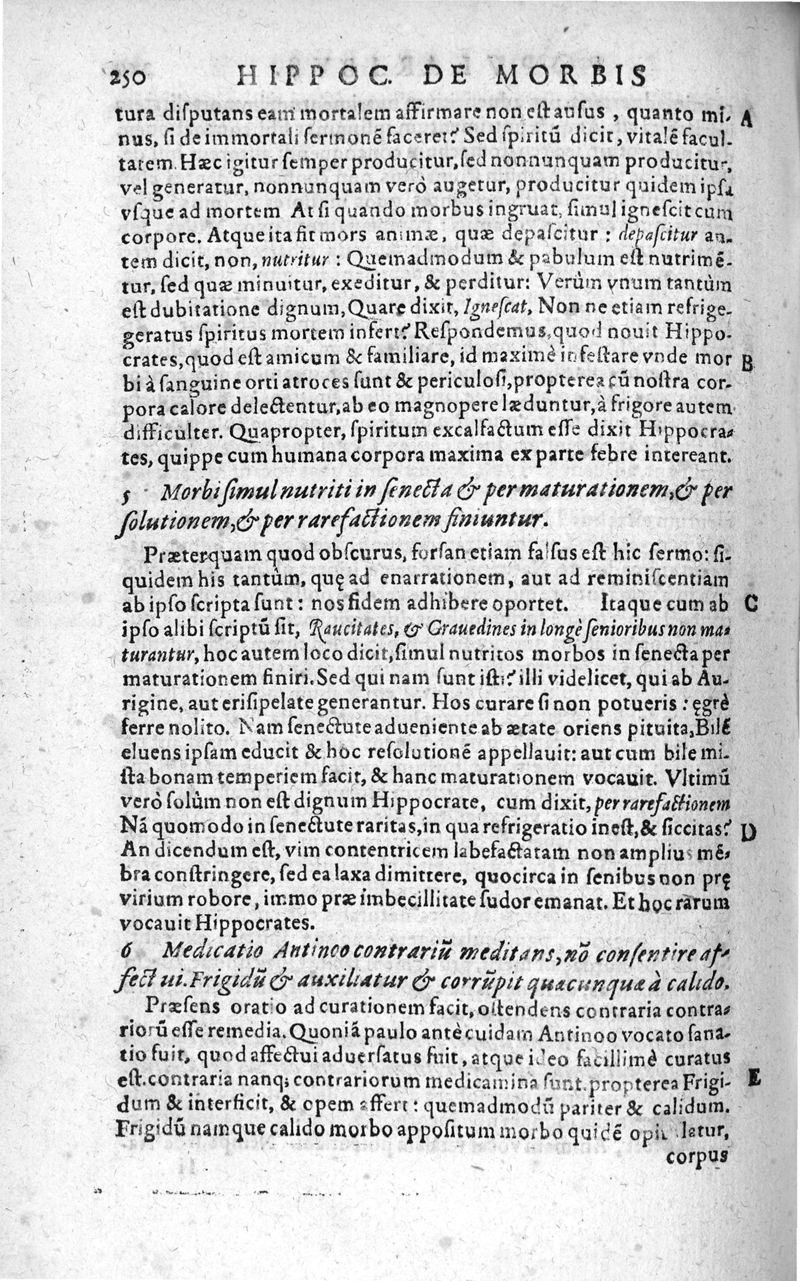 250 HIPPOC. DE MORBIS
tura disputans eam mortalem affirmare non est ausus, quanto mi- A
nus, si de immortali sermonē faceret? Sed spiritū dicit, vitalē facul-
tatem. Hæc igitur semper producitur, sed nonnunquam producitur,
vel generatur, nonnunquam verò augetur, producitur quidem ipsa
vsque ad mortem At si quando morbus ingruat, simul ignescit cum
corpore. Atque ita fit mors animæ, quæ depascitur : depascitur au-
tem dicit, non, nutritur : Quemadmodum & pabulum est nutrimē-
tur, sed quæ minuitur, exeditur, & perditur: Verùm vnum tantùm
est dubitatione dignum, Quare dixit, Ignescat, Non ne etiam refrige-
geratus spiritus mortem infert? Respondemus, quod nouit Hippo-
crates, quod est amicum & familiare, id maximè infestare vnde mor B
bi à sanguine orti atroces sunt & periculosi, propterea cū nostra cor-
pora calore delectentur, ab eo magnopere læduntur, à frigore autem
difficulter. Quapropter, spiritum excalfactum esse dixit Hippocra-
tes, quippe cum humana corpora maxima ex parte febre intereant.
5 Morbi simul nutriti in senecta & per maturationem, & per
solutionem, & per rarefactionem finiuntur.
Præterquam quod obscurus, forsan etiam falsus est hic sermo: si-
quidem his tantùm, quę ad enarrationem, aut ad reminiscentiam
ab ipso scripta sunt : nos fidem adhibere oportet. Itaque cum ab C
ipso alibi scriptū sit, Raucitates, & Grauedines in longè senioribus non ma-
turantur, hoc autem loco dicit, simul nutritos morbos in senecta per
maturationem finiri. Sed qui nam sunt isti? illi videlicet, qui ab Au-
rigine, aut erisipelate generantur. Hos curare si non potueris : ęgrè
ferre nolito. Nam senectute adueniente ab ætate oriens pituita, Bilē
eluens ipsam educit & hoc resolutionē appellauit: aut cum bile mi-
sta bonam temperiem facit, & hanc maturationem vocauit. Vltimū
verò solùm non est dignum Hippocrate, cum dixit, per rarefactionem
Nā quomodo in senectute raritas, in qua refrigeratio inest, & siccitas? D
An dicendum est, vim contentricem labefactatam non amplius mē-
bra constringere, sed ea laxa dimittere, quocirca in senibus non prę
virium robore, immo præ imbecillitate sudor emanat. Et hoc rarum
vocauit Hippocrates.
6 Medicatio Antinoo contrariū meditans, nō consentire af-
fectui. Frigidū & auxiliatur & corrūpit quacunqua à calido.
Præsens oratio ad curationem facit, ostendens contraria contra-
riorū esse remedia. Quoniā paulo antè cuidam Antinoo vocato sana-
tio fuit, quod affectui aduersatus fuit, atque ideo facillimè curatus
est. contraria nanq; contrariorum medicamina sunt. propterea Frigi- E
dum & interficit, & opem affert : quemadmodū pariter & calidum.
Frigidū namque calido morbo appositum morbo quidē latur,
corpus